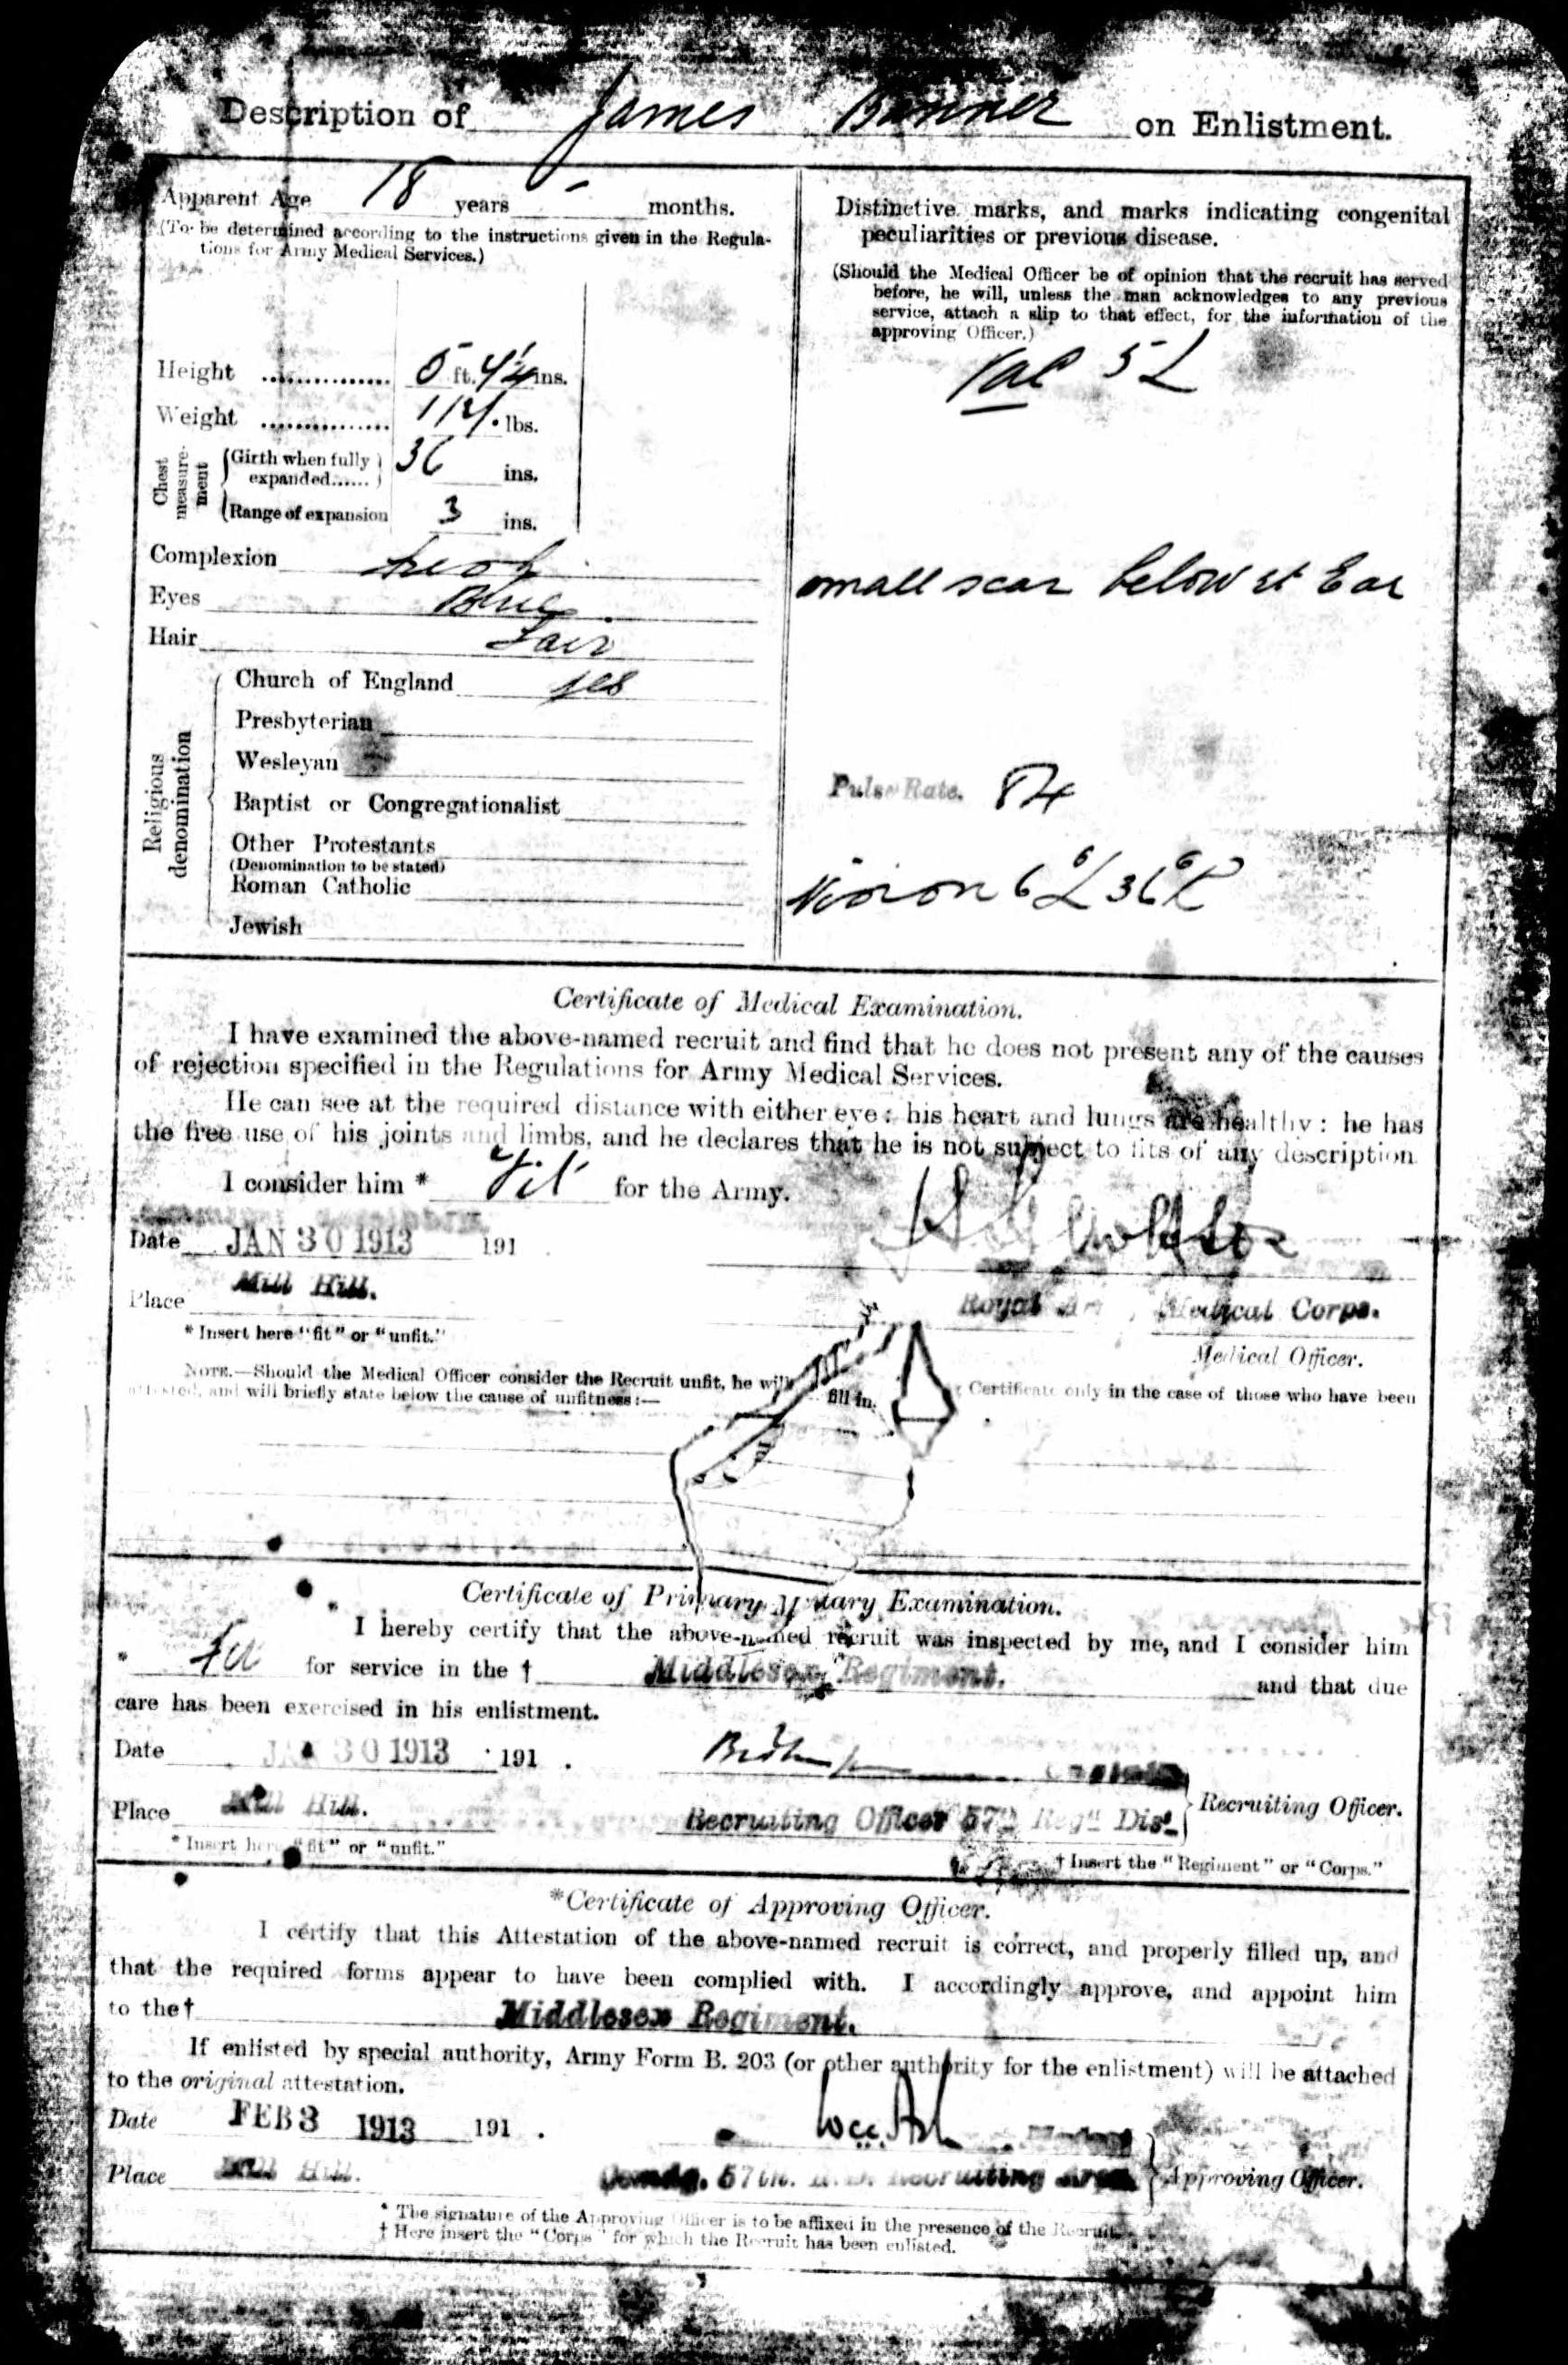 Description of James Banner on Enlistment.
Apparent Age 18 years - months.
(To be determined according to the instructions given in the Regula-
tions for Army Medical Services.)
Height ............... 5 ft. 4¼ ins.
Weight ............... 114. lbs.
Chest measure-ment
Girth when fully expanded...... 36 ins.
Range of expansion 3 ins.
Complexion Fresh
Eyes Blue
Hair Fair
Religious denomination
Church of England yes
Presbyterian
Wesleyan
Baptist or Congregationalist
Other Protestants
(Denomination to be stated)
Roman Catholic
Jewish
Distinctive marks, and marks indicating congenital
peculiarities or previous disease.
(Should the Medical Officer be of opinion that the recruit has served
before, he will, unless the man acknowledges to any previous
service, attach a slip to that effect, for the information of the
approving Officer.)
Vac 5 L
small scar below rt Ear
Pulse Rate. 84
Vision 6/6 L 36/6 R
Certificate of Medical Examination.
I have examined the above-named recruit and find that he does not present any of the causes
of rejection specified in the Regulations for Army Medical Services.
He can see at the required distance with either eye; his heart and lungs are healthy: he has
the free use of his joints and limbs, and he declares that he is not subject to fits of any description
I consider him * Fit for the Army.
Date JAN 30 1913 191
Place Mill Hill.
Royal Medical Corps.
Medical Officer.
* Insert here "fit" or "unfit."
NOTE.—Should the Medical Officer consider the Recruit unfit, he will fill in Certificate only in the case of those who have been
attested, and will briefly state below the cause of unfitness:—
Certificate of Primary Military Examination.
I hereby certify that the above-named recruit was inspected by me, and I consider him
* Fit for service in the † Middlesex Regiment. and that due
care has been exercised in his enlistment.
Date JAN 30 1913 191 .
Captain
Place Mill Hill.
Recruiting Officer 57th Regtl Dist.
Recruiting Officer.
* Insert here "fit" or "unfit."
† Insert the "Regiment" or "Corps."
*Certificate of Approving Officer.
I certify that this Attestation of the above-named recruit is correct, and properly filled up, and
that the required forms appear to have been complied with. I accordingly approve, and appoint him
to the† Middlesex Regiment.
If enlisted by special authority, Army Form B. 203 (or other authority for the enlistment) will be attached
to the original attestation.
Date FEB 3 1913 191 .
Place Mill Hill.
Comdg. 57th. R.D. Recruiting Area.
Approving Officer.
* The signature of the Approving Officer is to be affixed in the presence of the Recruit.
† Here insert the "Corps" for which the Recruit has been enlisted.